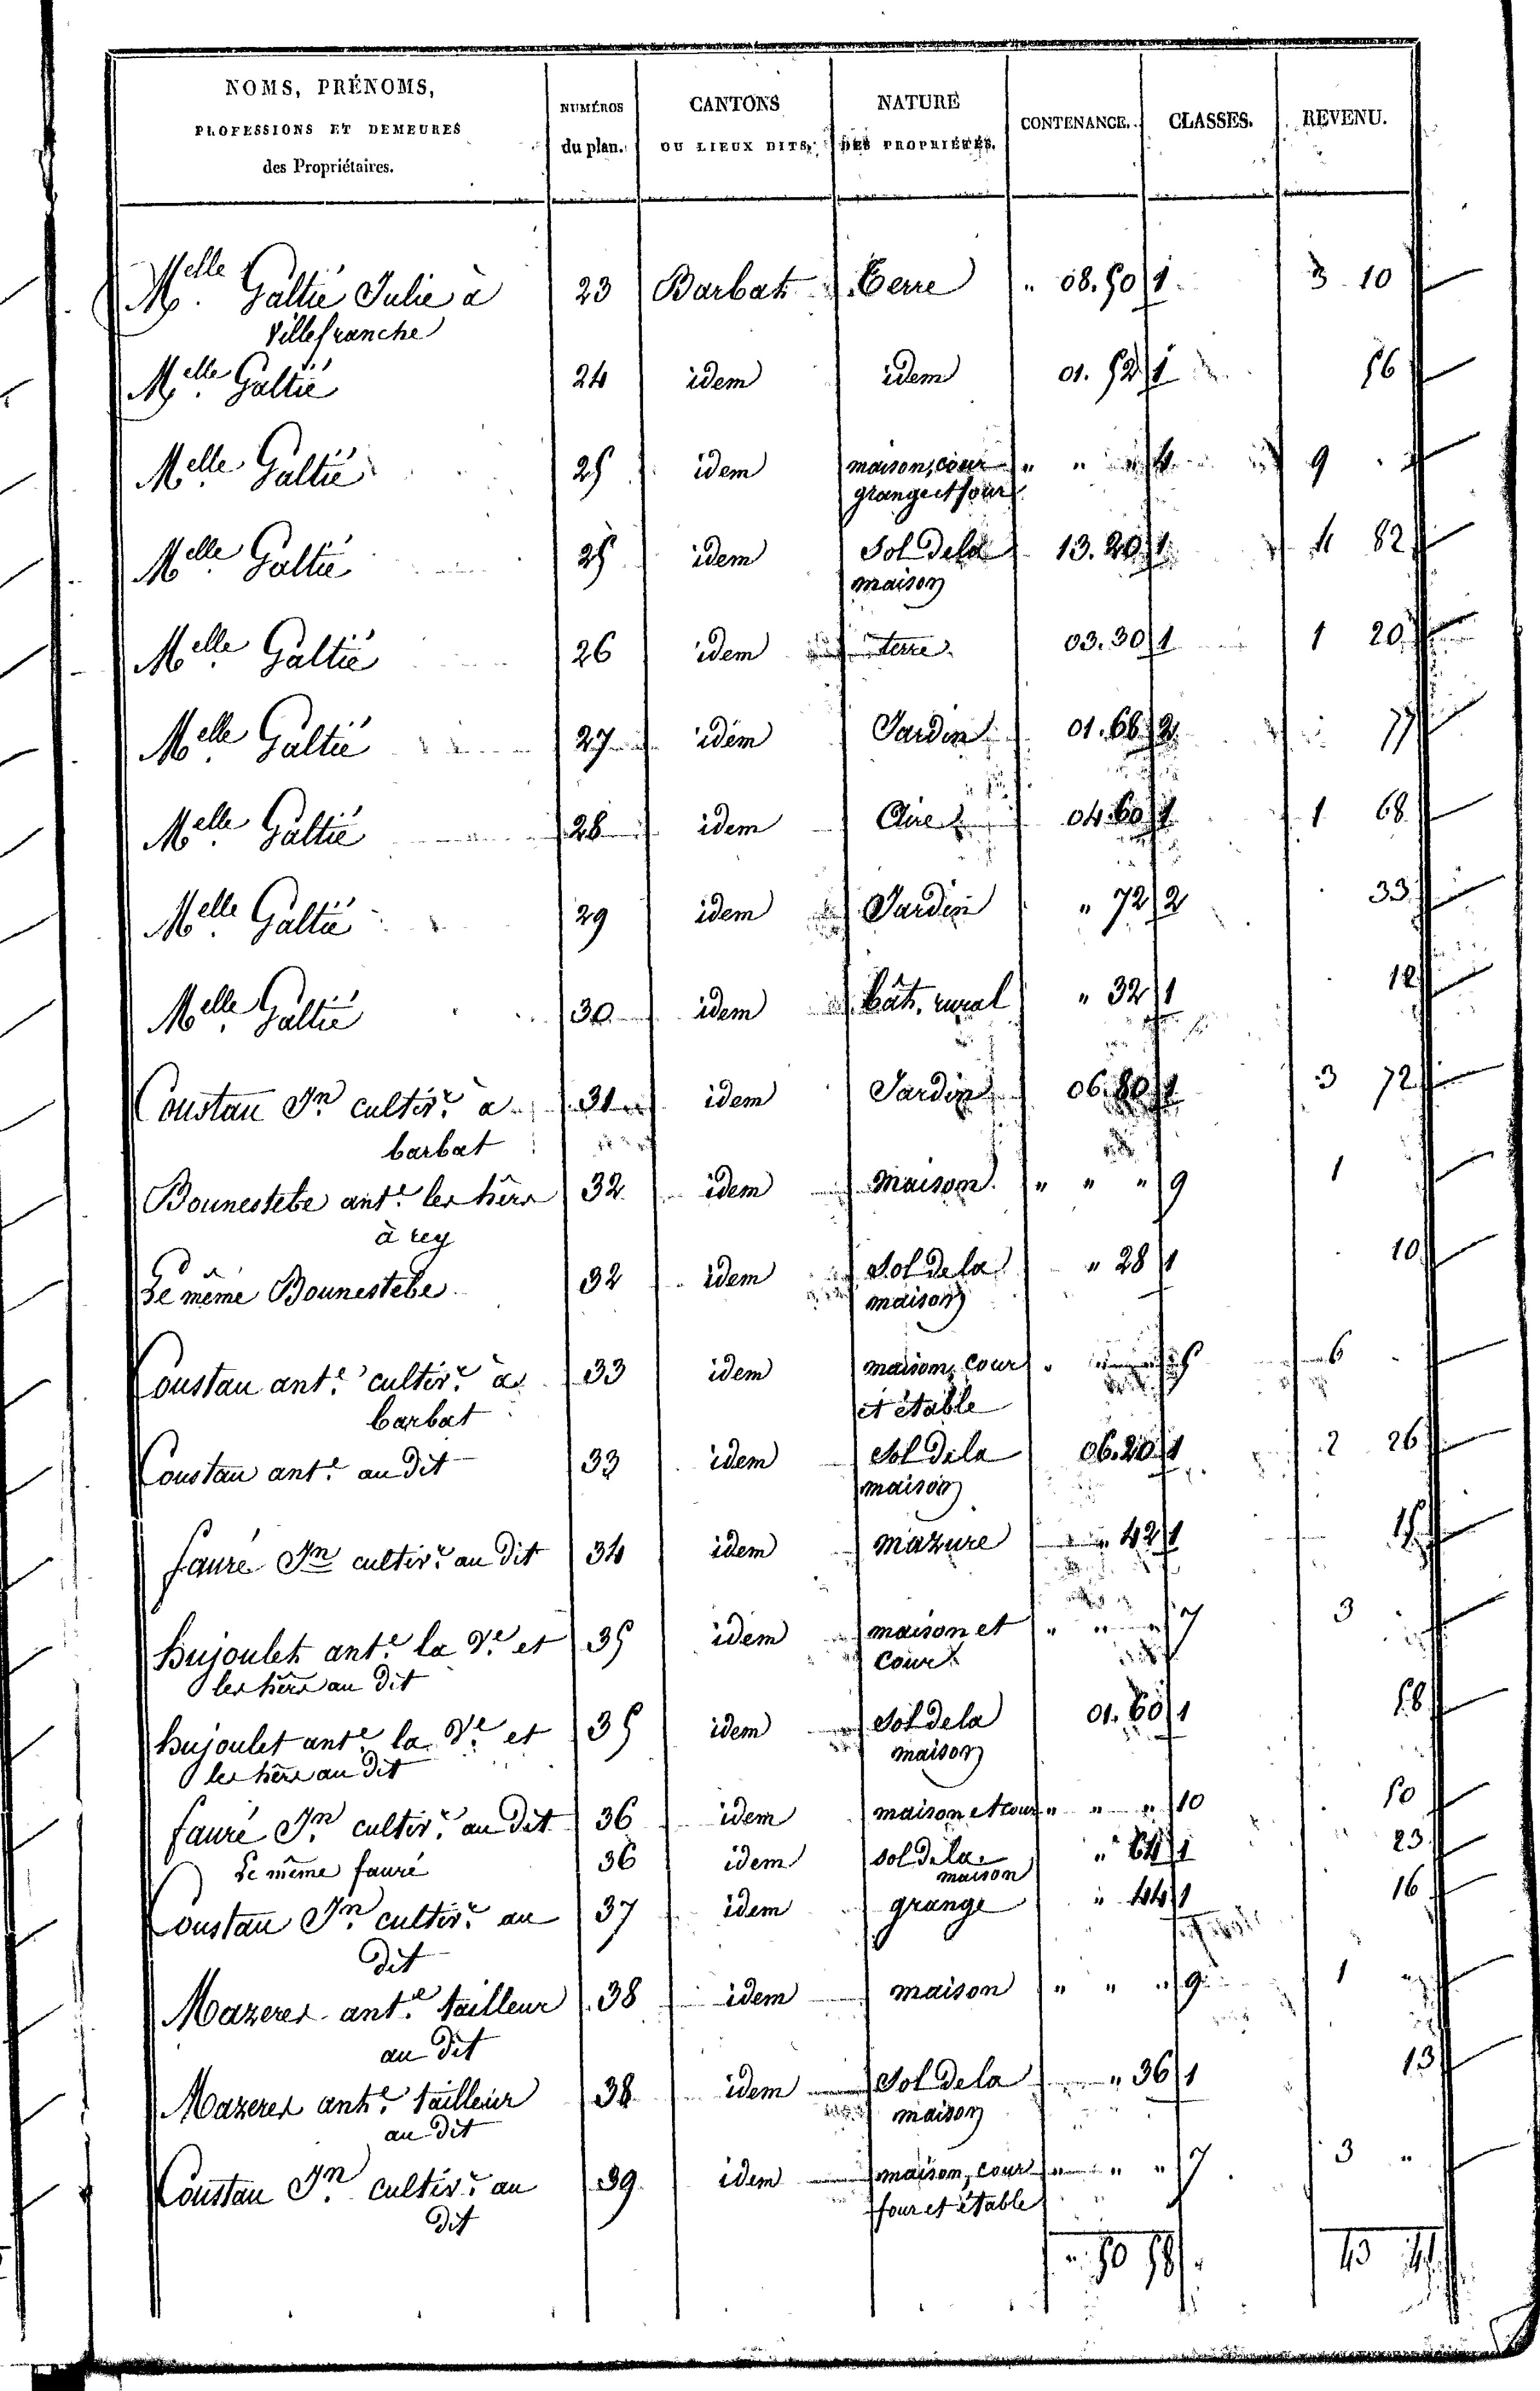 NOMS, PRÉNOMS, PROFESSIONS ET DEMEURES des Propriétaires. | NUMÉROS du plan. | CANTONS OU LIEUX DITS. | NATURE DES PROPRIÉTÉS. | CONTENANCE. | CLASSES. | REVENU.
Melle Galtié Julie à | 23 | Barbat | Terre | " 08.50 | 1 | 3 10
Villefranche
Melle Galtié | 24 | idem | idem | 01.52 | 1 | 56
Melle Galtié | 25 | idem | maison, cour | " " " | 4 | 9
grange et four
Melle Galtié | 25 | idem | Sol de la | 13.20 | 1 | 4 82
maison
Melle Galtié | 26 | idem | terre | 03.30 | 1 | 1 20
Melle Galtié | 27 | idem | Jardin | 01.68 | 2 | 77
Melle Galtié | 28 | idem | Aire | 04.60 | 1 | 1 68
Melle Galtié | 29 | idem | Jardin | " 72 | 2 | 33
Melle Galtié | 30 | idem | bât. rural | " 32 | 1 | 12
Coustau Jn cultivr à | 31 | idem | Jardin | 06.80 | 1 | 3 72
barbat
Bounestebe ante les hêrs | 32 | idem | maison | " " " | 9 | 1
à rey
Le même Bounestebe | 32 | idem | Sol de la | " 28 | 1 | 10
maison
Coustau ante cultivr à | 33 | idem | maison, cour | " | 5 | 6
barbat | et étable
Coustau ante au dit | 33 | idem | Sol de la | 06.20 | 1 | 2 26
maison
fauré Jn cultivr au dit | 34 | idem | mazure | " 42 | 1 | 15
hujoulet ante la Ve et | 35 | idem | maison et | " " " | 7 | 3
les hêrs au dit | cour
hujoulet ante la Ve et | 35 | idem | Sol de la | 01.60 | 1 | 58
les hêrs au dit | maison
fauré Jn cultivr au dit | 36 | idem | maison et cour | " " " | 10 | 50
Le même fauré | 36 | idem | sol de la maison | " 64 | 1 | 23
Coustau Jn cultivr au | 37 | idem | grange | " 44 | 1 | 16
dit
Mazeres ante tailleur | 38 | idem | maison | " " " | 9 | 1 "
au dit
Mazeres ante tailleur | 38 | idem | Sol de la | " 36 | 1 | 13
au dit | maison
Coustau Jn cultivr au | 39 | idem | maison, cour | " " " | 7 | 3 "
dit | four et étable
" 50 58 | 43 41